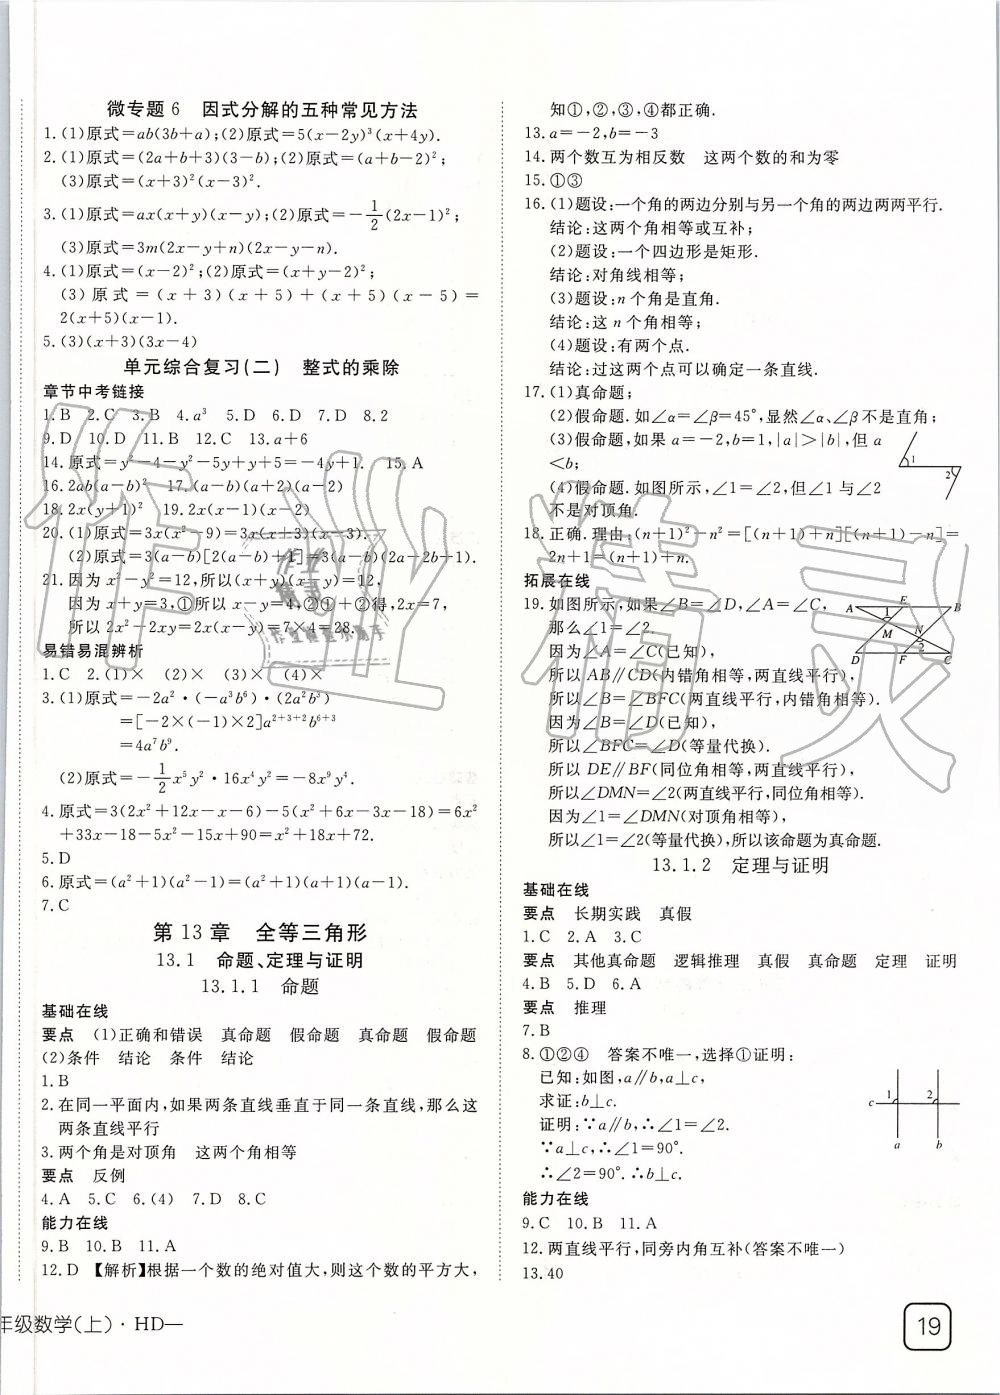 微专题6 因式分解的五种常见方法
1.(1)原式=ab(3b+a);(2)原式=5(x-2y)³(x+4y).
2.(1)原式=(2a+b+3)(3-b);(2)原式=(a+b-2)²;
(3)原式=(x+3)²(x-3)².
3.(1)原式=ax(x+y)(x-y);(2)原式=-1/2(2x-1)²;
(3)原式=3m(2x-y+n)(2x-y-n).
4.(1)原式=(x-2)²;(2)原式=(x+y-2)²;
(3)原式=(x+3)(x+5)+(x+5)(x-5)=
2(x+5)(x-1).
5.(3)(x+3)(3x-4)
单元综合复习(二) 整式的乘除
章节中考链接
1.B 2.C 3.B 4.a³ 5.D 6.D 7.D 8.2
9.D 10.D 11.B 12.C 13.a+6
14.原式=y²-4-y²-5y+y+5=-4y+1. 15.A
16.2ab(a-b)² 17.(a-b)(a+2)(a-2)
18.2x(y+1)² 19.2x(x-1)(x-2)
20.(1)原式=3x(x²-9)=3x(x+3)(x-3).
(2)原式=3(a-b)[2(a-b)+1]=3(a-b)(2a-2b+1).
21.因为x²-y²=12,所以(x+y)(x-y)=12.①
因为x+y=3,①所以x-y=4,②①+②得,2x=7,
所以2x²-2xy=2x(x-y)=7×4=28.
易错易混辨析
1.C 2.(1)× (2)× (3)× (4)×
3.(1)原式=-2a²·(-a³b⁶)·(2a²b³)
=[-2×(-1)×2]a²⁺³⁺²b⁶⁺³
=4a⁷b⁹.
(2)原式=-1/2x⁵y²·16x⁴y²=-8x⁹y⁴.
4.原式=3(2x²+12x-x-6)-5(x²+6x-3x-18)=6x²
+33x-18-5x²-15x+90=x²+18x+72.
5.D
6.原式=(a²+1)(a²-1)=(a²+1)(a+1)(a-1).
7.C
第13章 全等三角形
13.1 命题、定理与证明
13.1.1 命题
基础在线
要点 (1)正确和错误 真命题 假命题 真命题 假命题
(2)条件 结论 条件 结论
1.B
2.在同一平面内,如果两条直线垂直于同一条直线,那么这
两条直线平行
3.两个角是对顶角 这两个角相等
要点 反例
4.A 5.C 6.(4) 7.D 8.C
能力在线
9.B 10.B 11.A
12.D 【解析】根据一个数的绝对值大,则这个数的平方大,
知①,②,③,④都正确.
13.a=-2,b=-3
14.两个数互为相反数 这两个数的和为零
15.①③
16.(1)题设:一个角的两边分别与另一个角的两边两两平行.
结论:这两个角相等或互补;
(2)题设:一个四边形是矩形.
结论:对角线相等;
(3)题设:n个角是直角.
结论:这n个角相等;
(4)题设:有两个点.
结论:过这两个点可以确定一条直线.
17.(1)真命题;
(2)假命题.如∠α=∠β=45°,显然∠α、∠β不是直角;
(3)假命题,如果a=-2,b=1,|a|>|b|,但a
<b;
(4)假命题.如图所示,∠1=∠2,但∠1与∠2
不是对顶角.
1
2
18.正确.理由:(n+1)²-n²=[(n+1)+n][(n+1)-n]=
2n+1=(n+1)+n.
拓展在线
19.如图所示,如果∠B=∠D,∠A=∠C,
那么∠1=∠2.
因为∠A=∠C(已知),
所以AB∥CD(内错角相等,两直线平行),
所以∠B=∠BFC(两直线平行,内错角相等).
因为∠B=∠D(已知),
所以∠BFC=∠D(等量代换).
所以DE∥BF(同位角相等,两直线平行),
所以∠DMN=∠2(两直线平行,同位角相等).
因为∠1=∠DMN(对顶角相等),
所以∠1=∠2(等量代换),所以该命题为真命题.
A E B
1
M N
2
D F C
13.1.2 定理与证明
基础在线
要点 长期实践 真假
1.C 2.A 3.C
要点 其他真命题 逻辑推理 真假 真命题 定理 证明
4.B 5.D 6.A
要点 推理
7.B
8.①②④ 答案不唯一,选择①证明:
已知:如图,a∥b,a⊥c,
求证:b⊥c.
证明:∵a∥b,∴∠1=∠2.
∵a⊥c,∴∠1=90°.
∴∠2=90°.∴b⊥c.
1 2
c
a b
能力在线
9.C 10.B 11.A
12.两直线平行,同旁内角互补(答案不唯一)
13.40
年级数学(上)·HD—
19
作业精灵